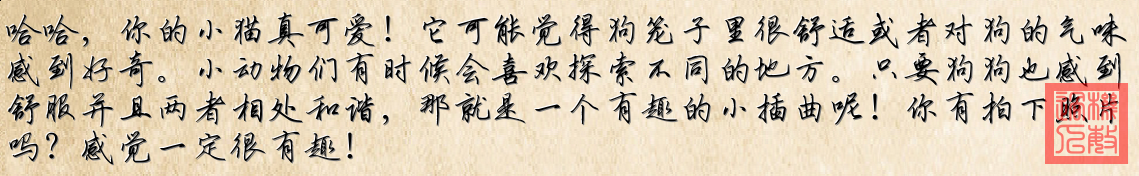 哈哈，你的小猫真可爱！它可能觉得狗笼子里很舒适或者对狗的气味
感到好奇。小动物们有时候会喜欢探索不同的地方。只要狗狗也感到
舒服并且两者相处和谐，那就是一个有趣的小插曲呢！你有拍下照片
吗？感觉一定很有趣！